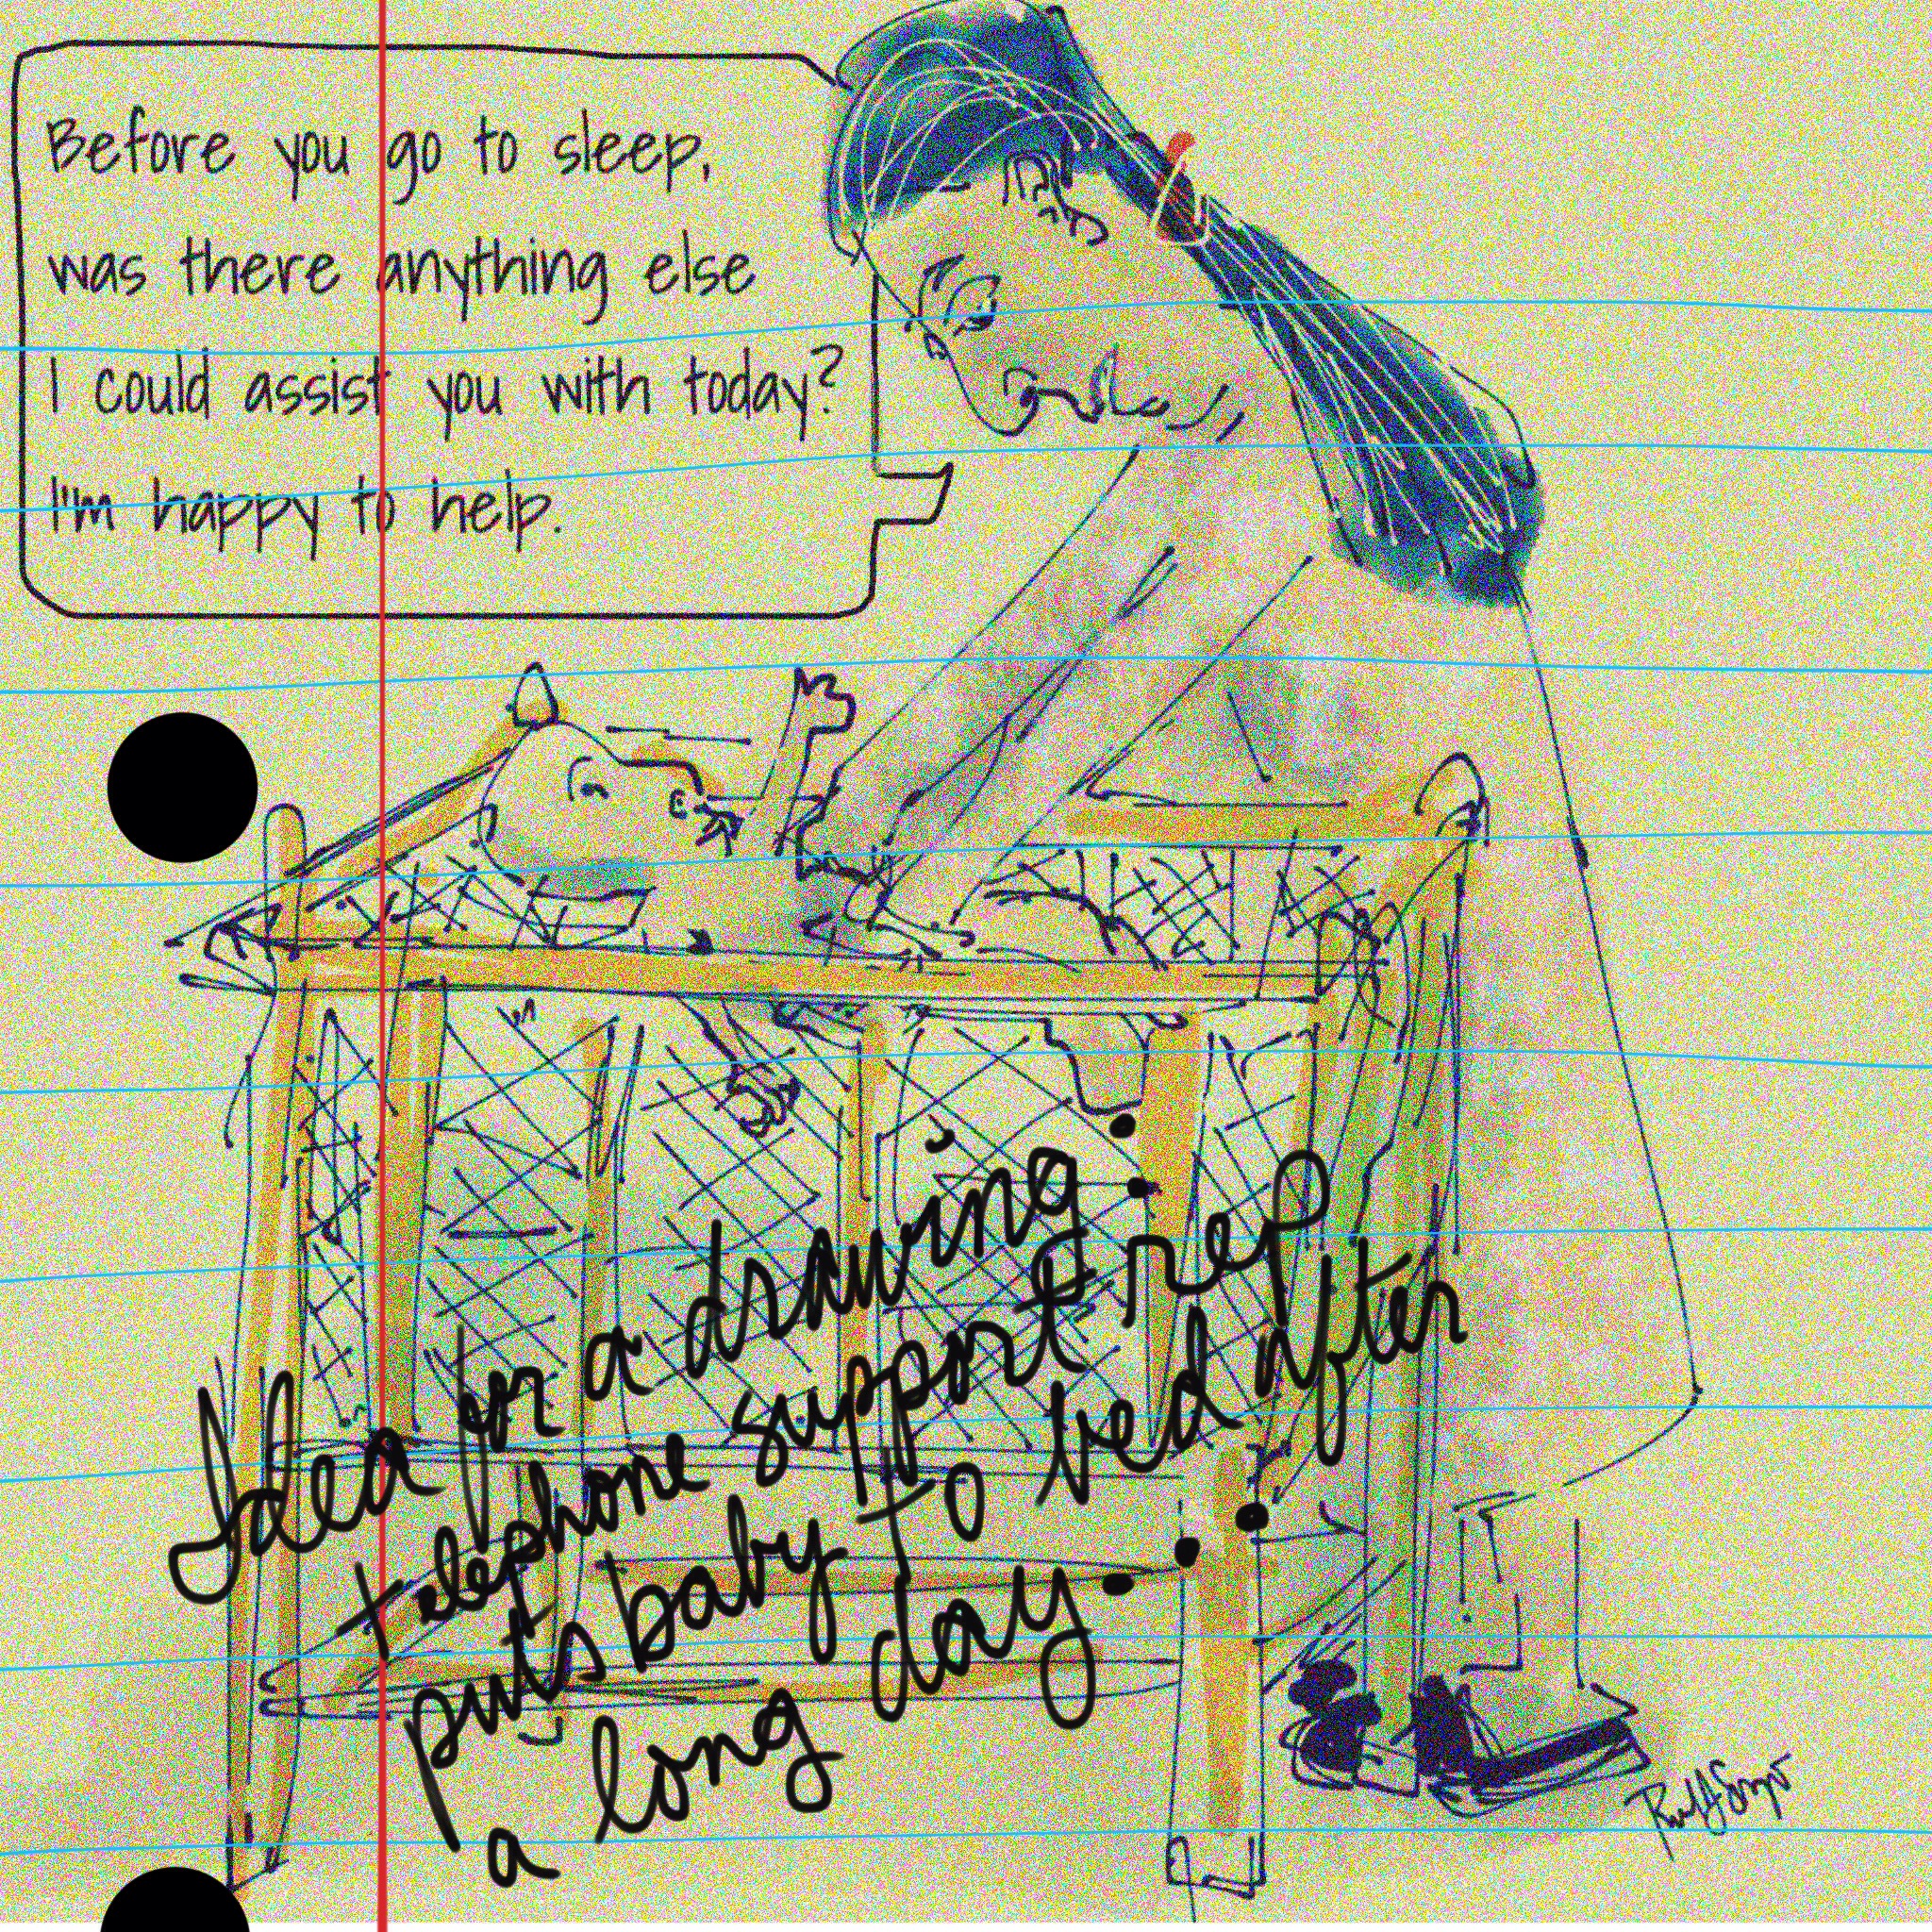 Before you go to sleep,
was there anything else
I could assist you with today?
I'm happy to help.
Idea for a drawing
telephone support rep
puts baby to bed after
a long day